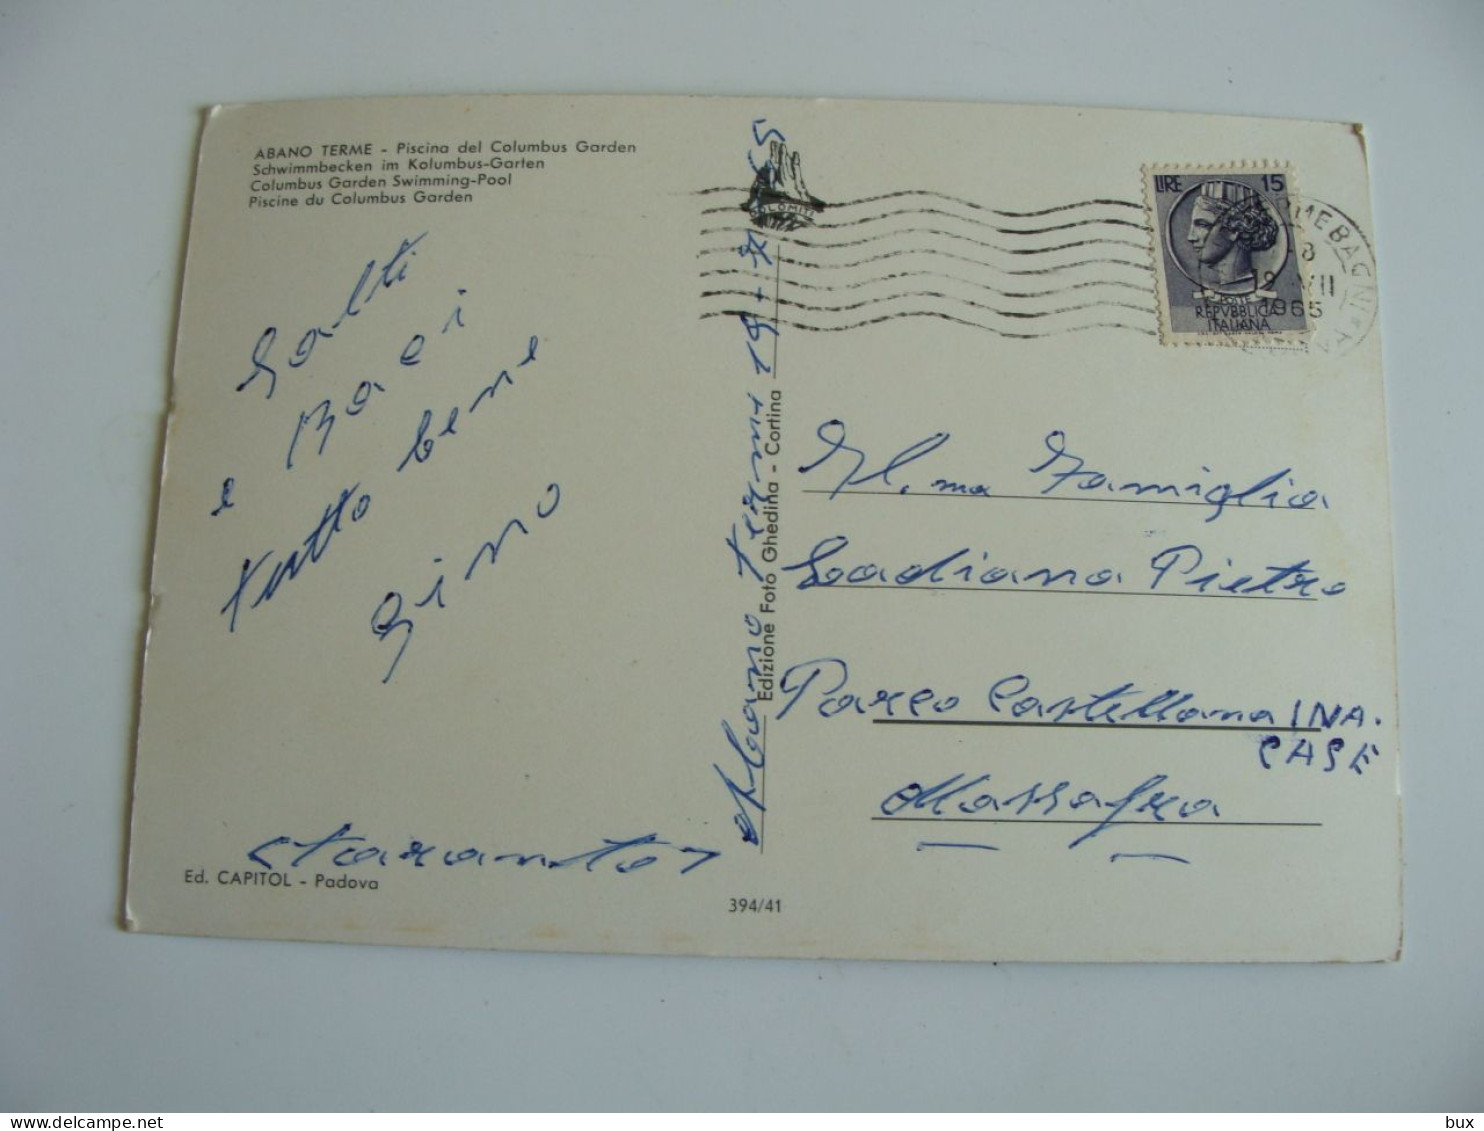 ABANO TERME - Piscina del Columbus Garden
Schwimmbecken im Kolumbus-Garten
Columbus Garden Swimming-Pool
Piscine du Columbus Garden
Salti
e Baci
tutto bene
Gino
(Taranto)
Ed. CAPITOL - Padova
Abano Termi 19-7 65
Edizione Foto Ghedina - Cortina
394/41
DOLOMITI
LIRE 15
POSTE
REPVBBLICA
ITALIANA
8
19 VII
1965
Ill.ma Famiglia
Ladiana Pietro
Parco Castellana INA.
CASE
Massafra
bux